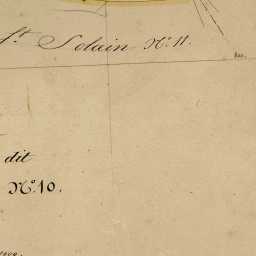 St Solain No. 11.
dit
No. 10.